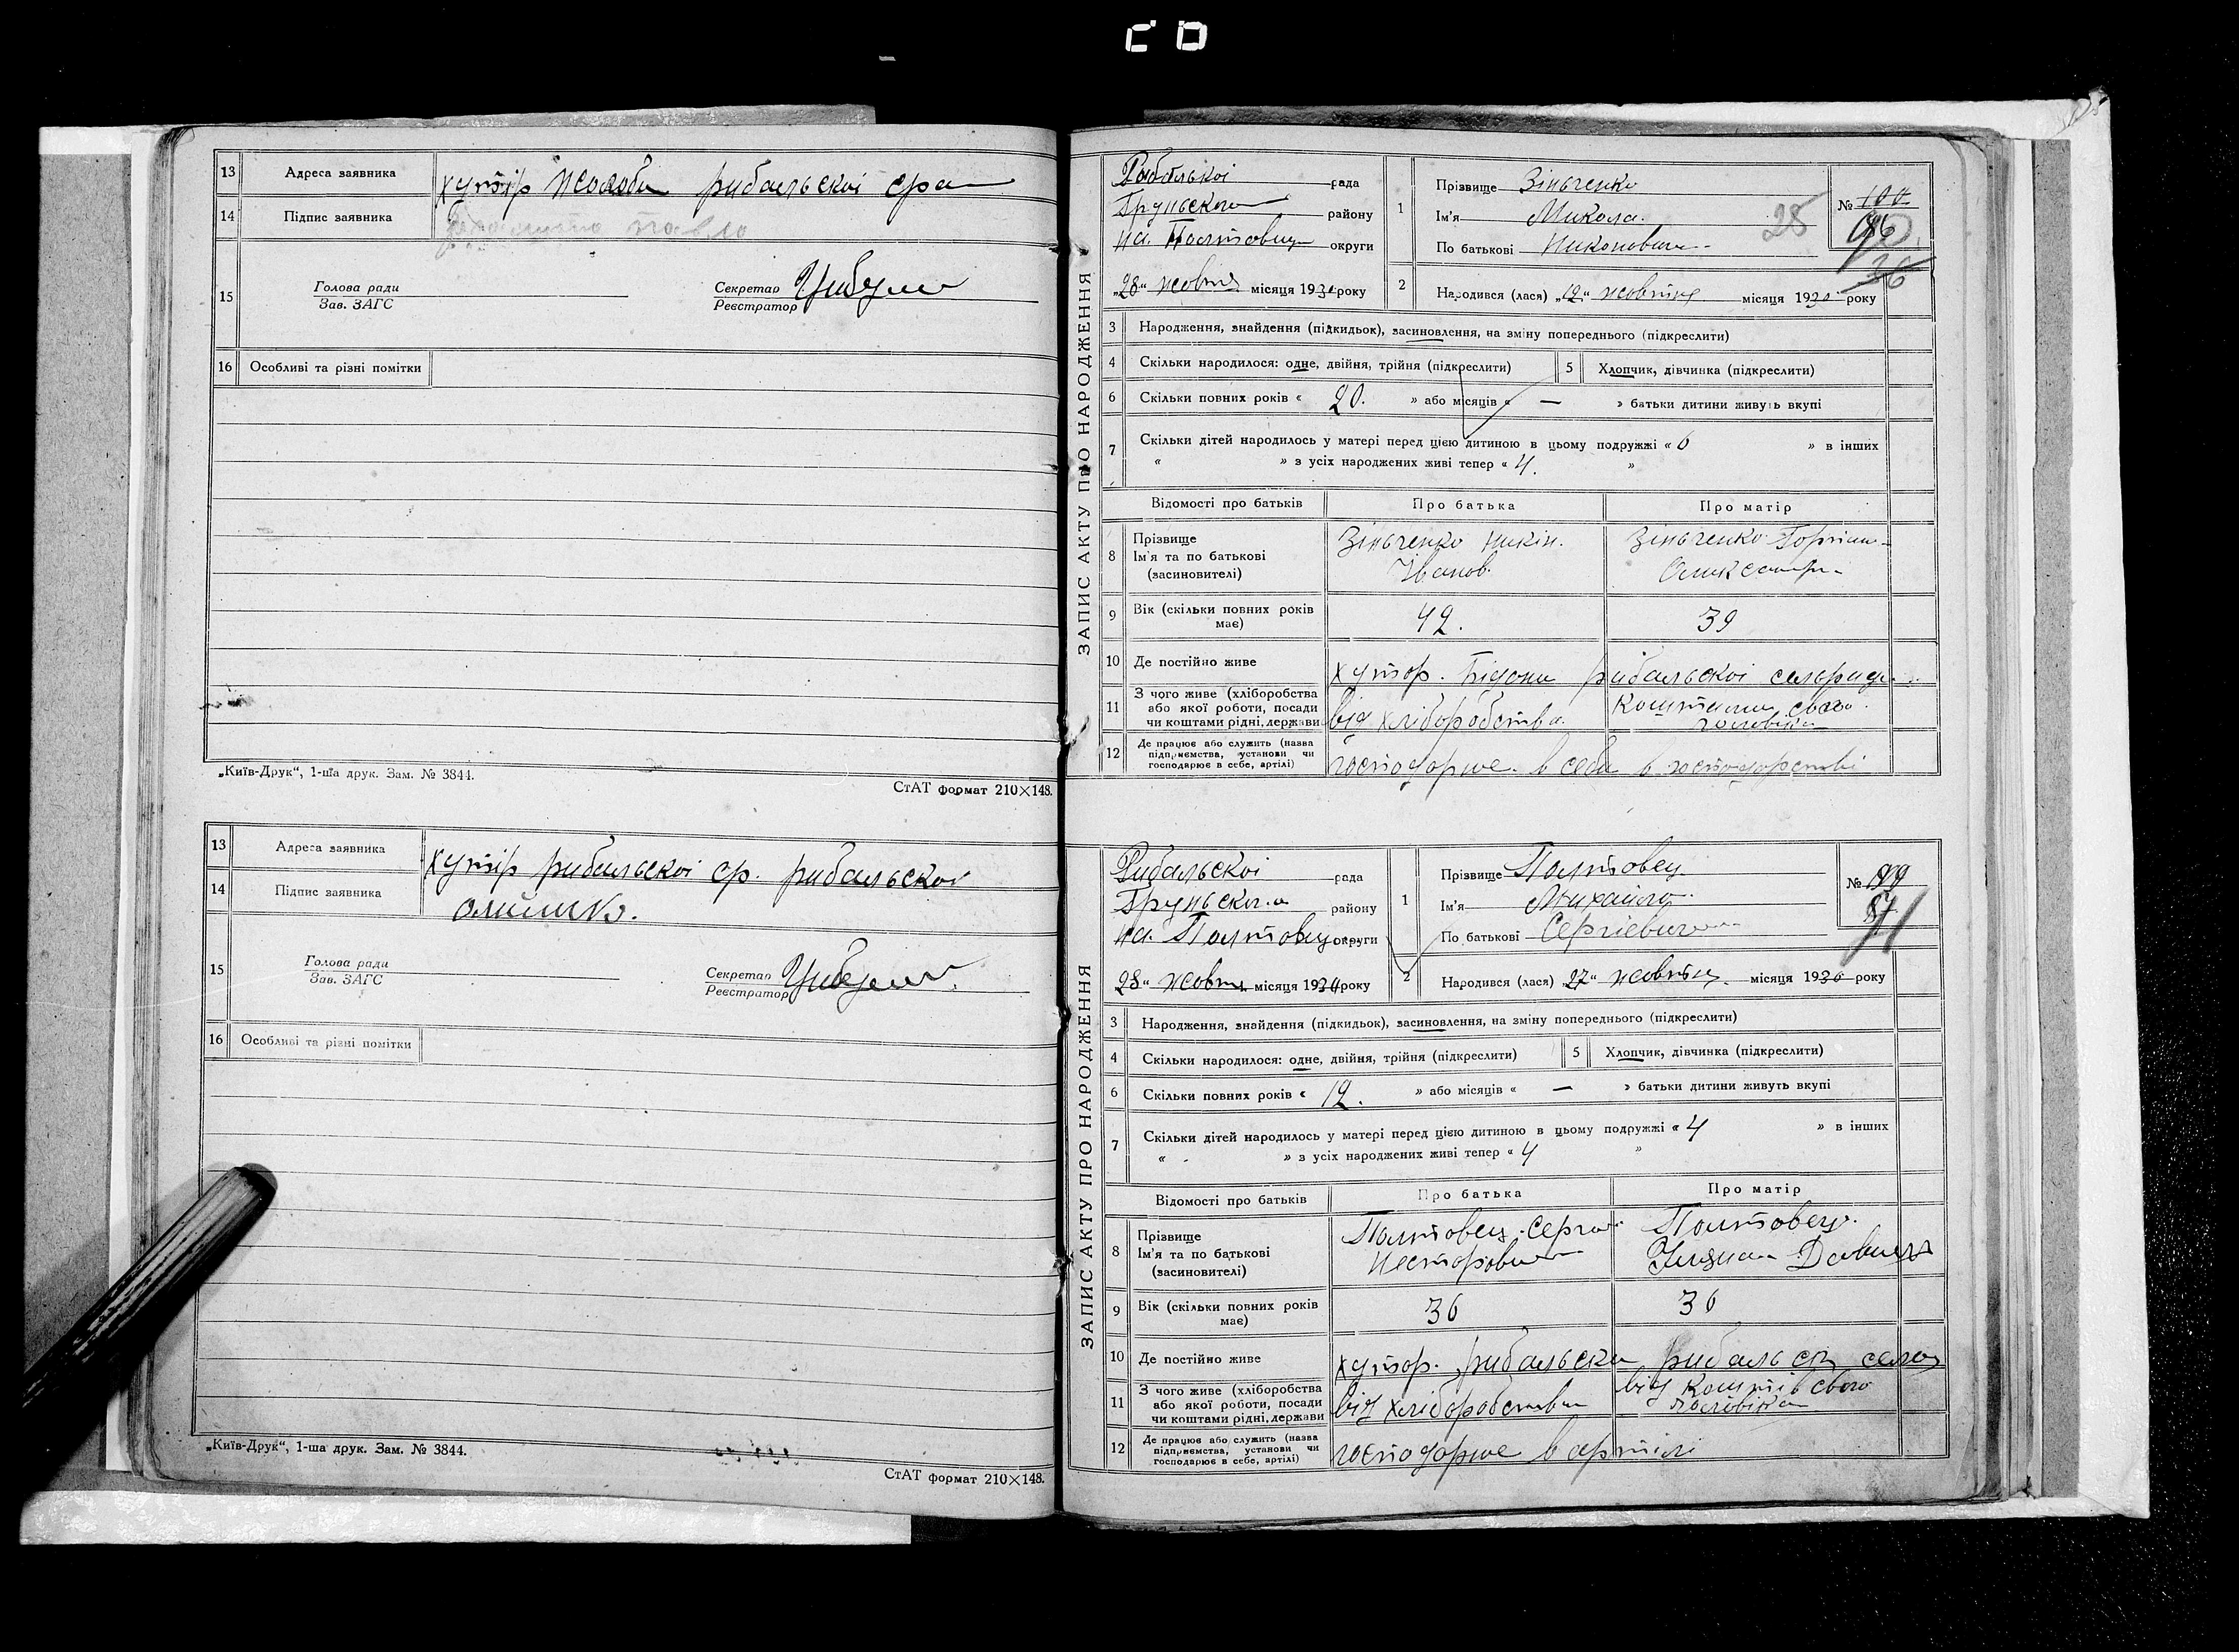 13 Адреса заявника хутір Жолоби рибальскої ср
14 Підпис заявника Павло
15 Голова ради
Зав. ЗАГС
Секретар
Реєстратор Цибуля
16 Особливі та різні помітки
„Київ-Друк“, 1-ша друк. Зам. № 3844.
СтАТ формат 210×148.
13 Адреса заявника хутір рибальскої ср. рибальской
14 Підпис заявника
15 Голова ради
Зав. ЗАГС
Секретар
Реєстратор Цибуля
16 Особливі та різні помітки
„Київ-Друк“, 1-ша друк. Зам. № 3844.
СтАТ формат 210×148.
ЗАПИС АКТУ ПРО НАРОДЖЕННЯ
Рибальскої рада
Груньского району
на Полтовщ округи
„28“ жовтня місяця 1930 року
1 Прізвище Зінченко
Ім'я Микола.
По батькові Никонович
№ 100
96
28
36
2 Народився (лася) „12“ жовтня місяця 1930 року
3 Народження, знайдення (підкидьок), засиновлення, на зміну попереднього (підкреслити)
4 Скільки народилося: одне, двійня, трійня (підкреслити)
5 Хлопчик, дівчинка (підкреслити)
6 Скільки повних років « 20. » або місяців « — » батьки дитини живуть вкупі
7 Скільки дітей народилось у матері перед цією дитиною в цьому подружжі « 6 » в інших
« » з усіх народжених живі тепер « 4. »
Відомості про батьків Про батька Про матір
8 Прізвище
Ім'я та по батькові
(засновителі)
Зіньченко Никін.
Іванов.
Зіньченко Горпин
Олександр
9 Вік (скільки повних років
має) 42. 39
10 Де постійно живе хутор. рибальскої сельради
11 З чого живе (хліборобства
або якої роботи, посади
чи коштами рідні, держави
від хліборобства.
Коштами свого
чоловіка
12 Де працює або служить (назва
підприємства, установи чи
господарює в себе, артілі)
господарює в себе в господарстві
ЗАПИС АКТУ ПРО НАРОДЖЕННЯ
Рибальскої рада
Груньского району
на Полтовщ округи
28“ жовтн місяця 1930 року
1 Прізвище Полтовец
Ім'я Михайло
По батькові Сергієвич
№ 199
2 Народився (лася) „27“ жовтня місяця 1930 року
3 Народження, знайдення (підкидьок), засиновлення, на зміну попереднього (підкреслити)
4 Скільки народилося: одне, двійня, трійня (підкреслити)
5 Хлопчик, дівчинка (підкреслити)
6 Скільки повних років « 12. » або місяців « — » батьки дитини живуть вкупі
7 Скільки дітей народилось у матері перед цією дитиною в цьому подружжі « 4 » в інших
« » з усіх народжених живі тепер « 4 »
Відомості про батьків Про батька Про матір
8 Прізвище
Ім'я та по батькові
(засиновителі)
Полтовец. Сергій
Несторович
Полтовец.
Давид
9 Вік (скільки повних років
має) 36 36
10 Де постійно живе хутор. рибальски рибальск
11 З чого живе (хліборобства
або якої роботи, посади
чи коштами рідні, держави
від хліборобства
від коштів свого
чоловіка
12 Де працює або служить (назва
підприємства, установи чи
господарює в себе, артілі)
господарює в артілі